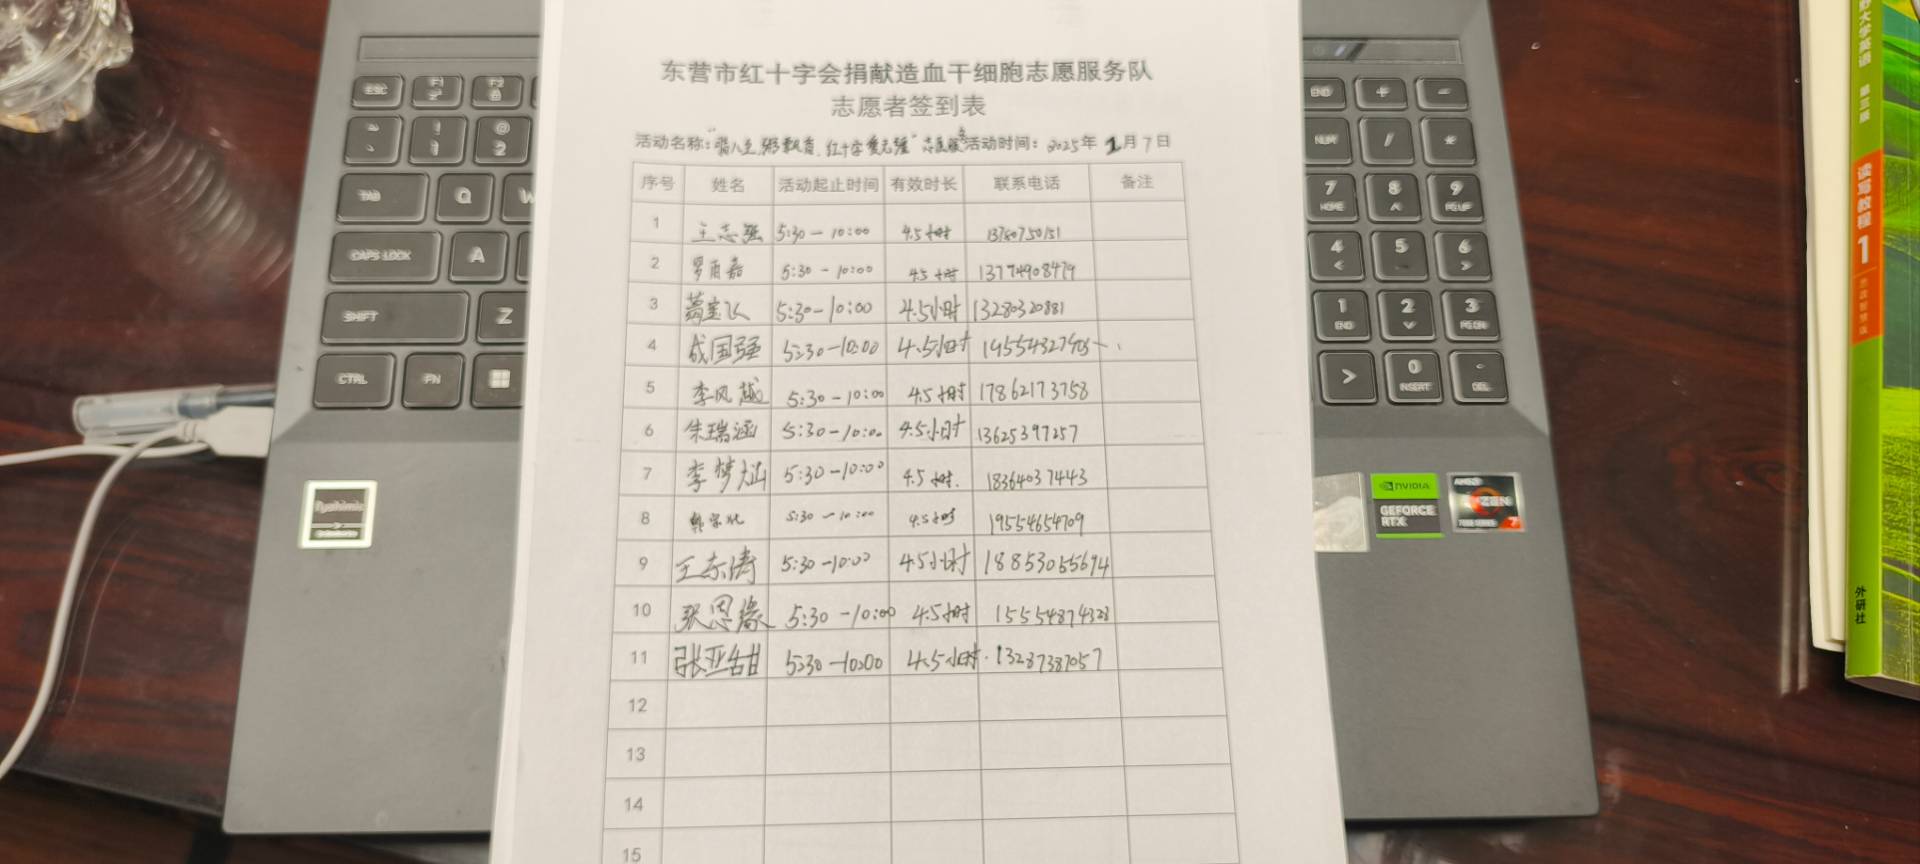 东营市红十字会捐献造血干细胞志愿服务队
志愿者签到表
活动名称:“腊八至,粥飘香,红十字爱志强”志愿服务 活动时间: 2025年 1月 7日
序号 姓名 活动起止时间 有效时长 联系电话 备注
1 王志强 5:30-10:00 4.5小时 13780750151
2 罗雨嘉 5:30-10:00 4.5小时 13774908479
3 葛宝飞 5:30-10:00 4.5小时 13280320881
4 成国强 5:30-10:00 4.5小时 19554327405
5 李风越 5:30-10:00 4.5小时 17862173758
6 朱瑞涵 5:30-10:00 4.5小时 13625397257
7 李梦涵 5:30-10:00 4.5小时. 18364037443
8 5:30-10:00 4.5小时 19554654709
9 王东涛 5:30-10:00 4.5小时 18853055694
10 张恩缘 5:30-10:00 4.5小时 15554874328
11 张亚甜 5:30-10:00 4.5小时. 13287387057
12
13
14
15
ESC F1 F2
! 1 @ 2
TAB Q W
CAPS LOCK A
SHIFT Z
CTRL FN
END + -
NUM / *
7 HOME 8 9 PG UP
4 5 6
1 END 2 3 PG DN
0 INSERT DEL
NVIDIA
GEFORCE
RTX
AMD
RYZEN
7
野大学英语 第三版
读写教程 1
思政智慧版
外研社